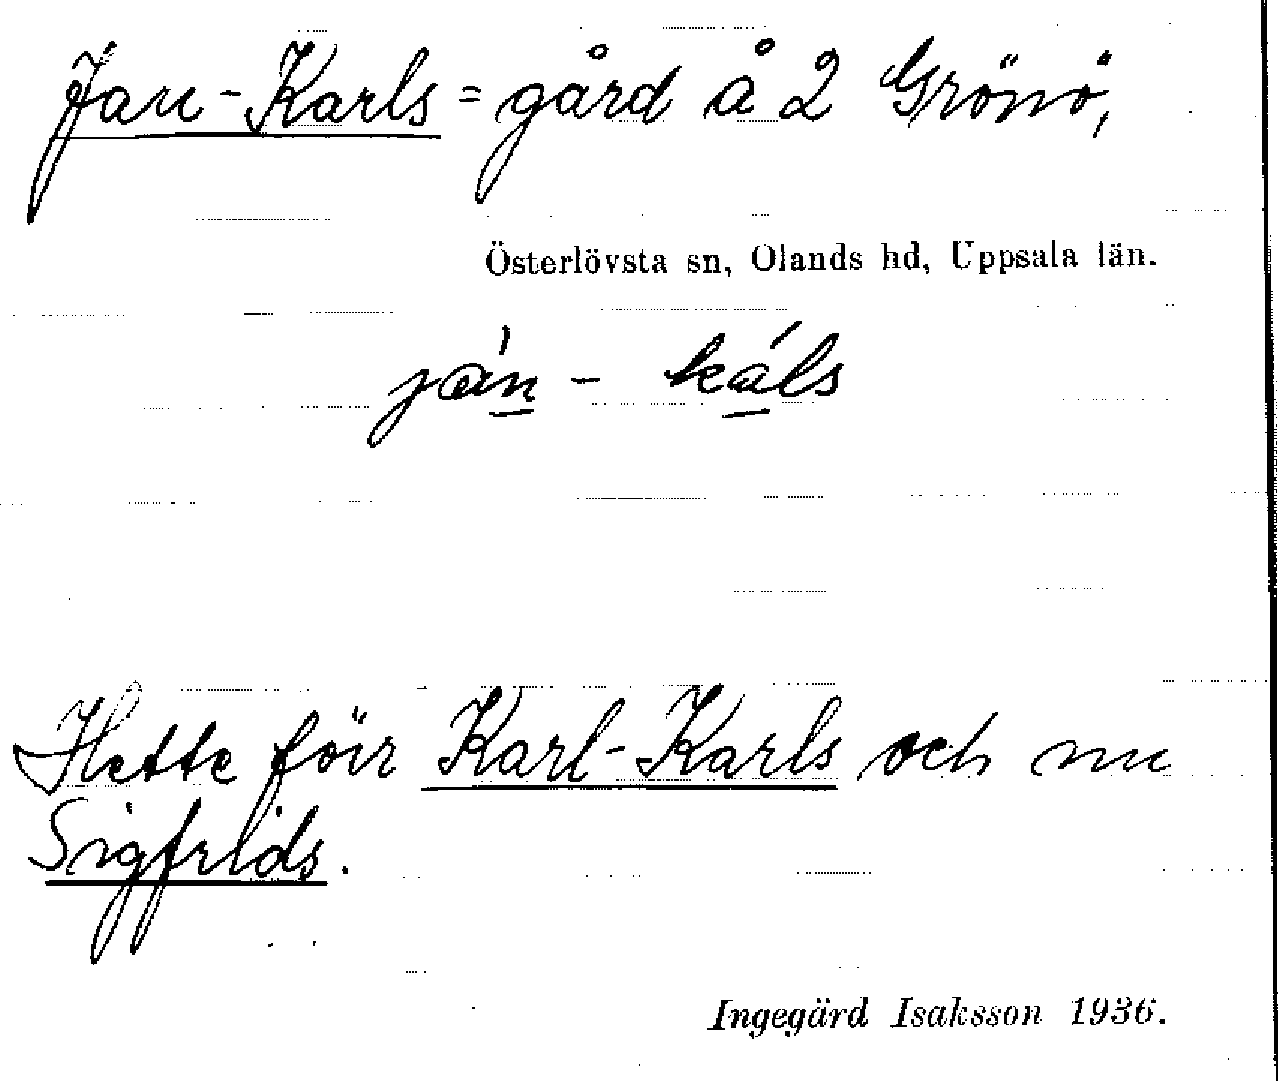 Jan-Karls = gård å 2 Grönö,
Österlövsta sn, Olands hd, Uppsala län.
ján - káls
Hette förr Karl-Karls och nu
Sigfrids.
Ingegärd Isaksson 1936.